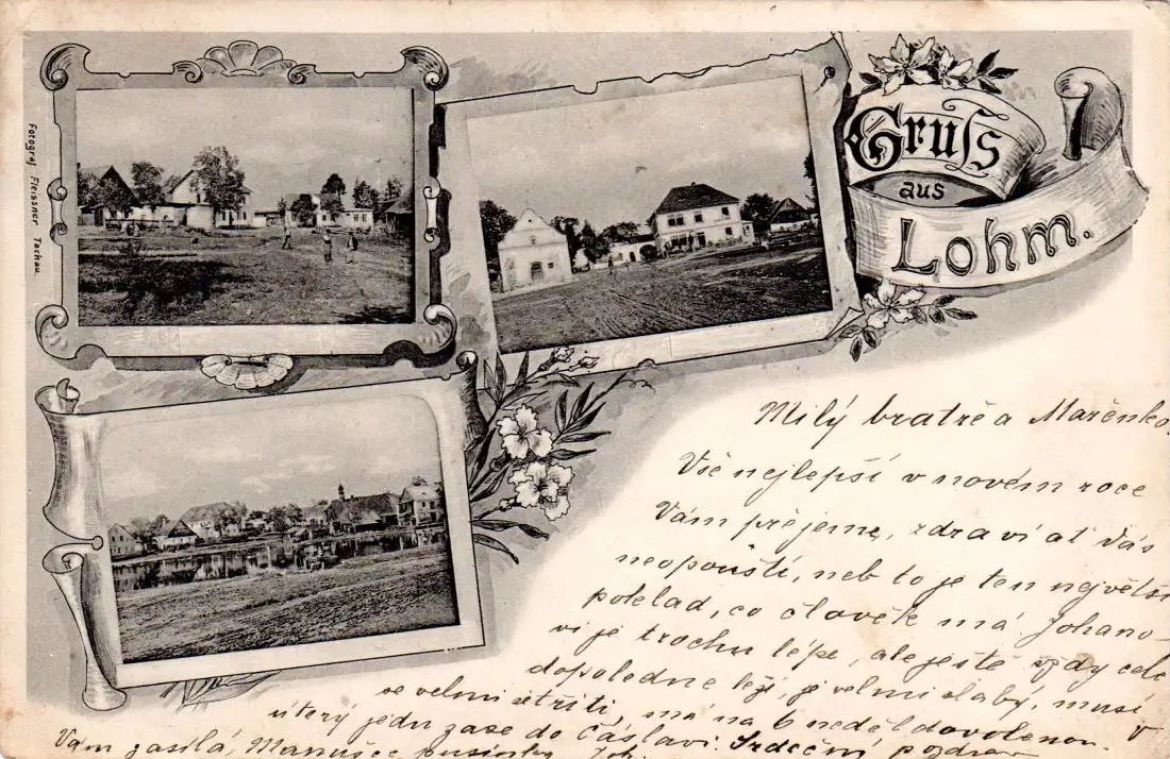 Fotograf Fleissner Tachau.
Gruſs
aus
Lohm.
Milý bratře a Mařenko.
Vše nejlepší v novém roce
Vám přejeme, zdraví ať Vás
neopouští, neb to je ten největší
poklad, co člověk má. Johano-
vi je trochu lépe, ale ještě vždy celé
dopoledne leží, je velmi slabý, musí
se velmi šetřiti, má na 6 neděl dovolenou. V
úterý jedu zase do Čáslavi. Srdečný pozdrav
Vám zasílá, Manušce pusinky Joh.